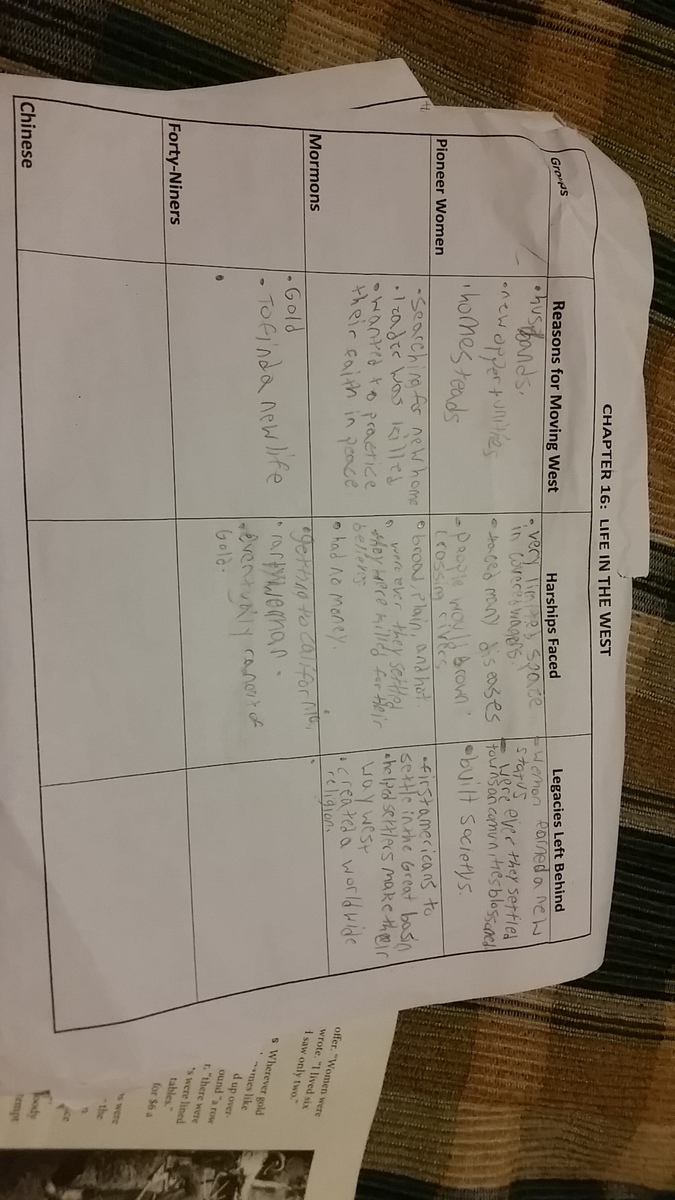 CHAPTER 16: LIFE IN THE WEST
Groups
Reasons for Moving West
Harships Faced
Legacies Left Behind
Pioneer Women
• husbands.
• new opportunities
• homesteads
• very limited space
in covered wagons.
• faced many diseases
• people would drown
crossing rivers
- woman earned a new
status
- were ever they settled
towns on comunities blossomed
• built societys.
Mormons
• searching for new home
• leader was killed
• wanted to practice
their faith in peace
• broad, plain, and hot.
• were ever they settled
they were killed for their
believes
• had no money.
• first americans to
settle in the Great basin
• helped settlers make their
way west
• created a world wide
religion.
Forty-Niners
• Gold
• To find a new life
•
• getting to california,
• rarly woman.
• eventualy ran out of
Gold.
•
Chinese
offer. "Women were
wrote. "I lived six
I saw only two."
s Wherever gold
mes like
d up over-
ound "a row
r, "there were
's were lined
tables."
for $6 a
were
- the
tempt